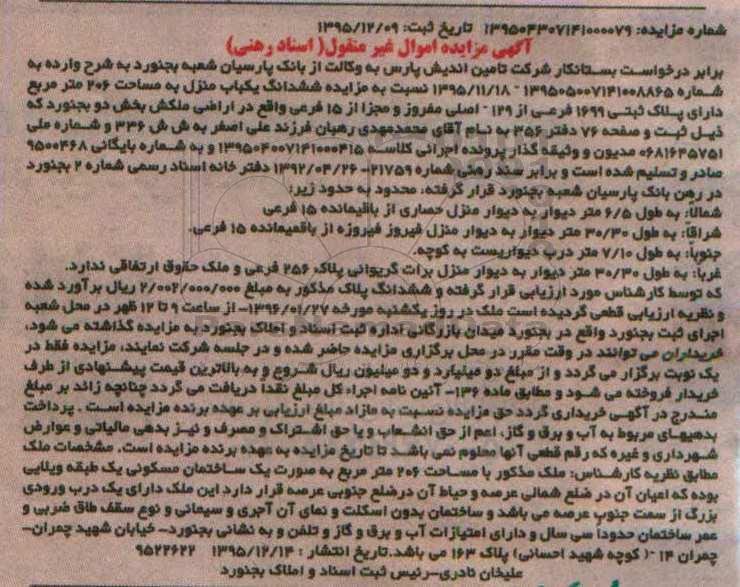 شماره مزایده: ۱۳۹۵۰۴۳۰۷۱۴۱۰۰۰۰۷۹ تاریخ ثبت: ۱۳۹۵/۱۲/۰۹
آگهی مزایده اموال غیر منقول( اسناد رهنی)
برابر درخواست بستانکار شرکت تامین اندیش پارس به وکالت از بانک پارسیان شعبه بجنورد به شرح وارده به
شماره ۱۳۹۵۰۵۰۰۷۱۴۱۰۰۸۸۶۵ - ۱۳۹۵/۱۱/۱۸ نسبت به مزایده ششدانگ یکباب منزل به مساحت ۲۰۶ متر مربع
دارای پلاک ثبتی ۱۶۹۹ فرعی از ۱۲۹ - اصلی مفروز و مجزا از ۱۵ فرعی واقع در اراضی ملکش بخش دو بجنورد که
ذیل ثبت و صفحه ۷۶ دفتر ۳۵۶ به نام آقای محمدمهدی رهبان فرزند علی اصغر به ش ش ۳۳۶ و شماره ملی
۰۶۸۱۶۴۵۷۵۱ مدیون و وثیقه گذار پرونده اجرائی کلاسه ۱۳۹۵۰۴۰۰۷۱۴۱۰۰۰۴۱۵ و به شماره بایگانی ۹۵۰۰۴۶۸
صادر و تسلیم شده است و برابر سند رهنی شماره ۲۱۷۵۹- ۱۳۹۲/۰۴/۲۶ دفتر خانه اسناد رسمی شماره ۲ بجنورد
در رهن بانک پارسیان شعبه بجنورد قرار گرفته، محدود به حدود زیر:
شمالاً: به طول ۶/۵ متر دیوار به دیوار منزل حصاری از باقیمانده ۱۵ فرعی
شرقاً: به طول ۳۰/۳۰ متر دیوار به دیوار منزل فیروز فیروزه از باقمیمانده ۱۵ فرعی.
جنوباً: به طول ۷/۱۰ متر درب دیواریست به کوچه.
غرباً: به طول ۳۰/۳۰ متر دیوار به دیوار منزل برات گریوانی پلاک ۲۵۶ فرعی و ملک حقوق ارتفاقی ندارد.
که توسط کارشناس مورد ارزیابی قرار گرفته و ششدانگ پلاک مذکور به مبلغ ۲/۰۰۲/۰۰۰/۰۰۰ ریال برآورد شده
و نظریه ارزیابی قطعی گردیده است ملک در روز یکشنبه مورخه ۱۳۹۶/۰۱/۲۷- از ساعت ۹ تا ۱۲ ظهر در محل شعبه
اجرای ثبت بجنورد واقع در بجنورد میدان بازرگانی اداره ثبت اسناد و املاک بجنورد به مزایده گذاشته می شود،
خریداران می توانند در وقت مقرر در محل برگزاری مزایده حاضر شده و در جلسه شرکت نمایند، مزایده فقط در
یک نوبت برگزار می گردد و از مبلغ دو میلیارد و دو میلیون ریال شروع و به بالاترین قیمت پیشنهادی از طرف
خریدار فروخته می شود و مطابق ماده ۱۳۶- آئین نامه اجراء کل مبلغ نقداً دریافت می گردد چنانچه زائد بر مبلغ
مندرج در آگهی خریداری گردد حق مزایده نسبت به مازاد مبلغ ارزیابی بر عهده برنده مزایده است . پرداخت
بدهیهای مربوط به آب و برق و گاز، اعم از حق انشعاب و یا حق اشتراک و مصرف و نیز بدهی مالیاتی و عوارض
شهرداری و غیره که رقم قطعی آنها معلوم نمی باشد تا تاریخ مزایده به عهده برنده مزایده است. مشخصات ملک
مطابق نظریه کارشناس: ملک مذکور با مساحت ۲۰۶ متر مربع به صورت یک ساختمان مسکونی یک طبقه ویلایی
بوده که اعیان آن در ضلع شمالی عرصه و حیاط آن درضلع جنوبی عرصه قرار دارد این ملک دارای یک درب ورودی
بزرگ از سمت جنوب عرصه می باشد و ساختمان بدون اسکلت و نمای آن آجری و سیمانی و نوع سقف طاق ضربی و
عمر ساختمان حدوداً سی سال و دارای امتیازات آب و برق و گاز و تلفن و به نشانی بجنورد- خیابان شهید چمران-
چمران ۱۴ -( کوچه شهید احسانی) پلاک ۱۶۳ می باشد.تاریخ انتشار : ۱۳۹۵/۱۲/۱۴ ۹۵۲۲۶۲۲
علیخان نادری-رئیس ثبت اسناد و املاک بجنورد